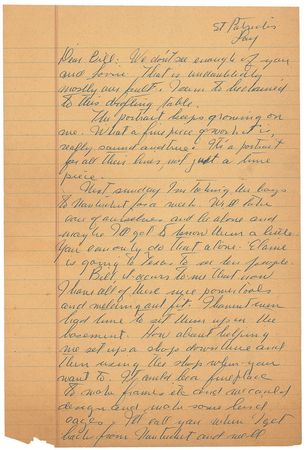 St Patricks
Day
Dear Bill: We don't see enough of you
and Lorie. That is undoubtedly
mostly our fault. I seem to be chained
to this drafting table.
The portrait keeps growing on
me. What a fine piece of work it is,
really sound and true! It's a portrait
for all their lives, not just a time
piece.
Next sunday I'm taking the boys
to Nantucket for a week. We'll take
care of ourselves and be alone and
maybe I'll get to know them a little.
You can only do that alone. Elaine
is going to Texas to see her people.
Bill, it occurs to me that now
I have all of these nice power tools
and melding out fit. I haven't even
had time to set them up in the
basement. How about helping
me set up a shop down there and
then using the shop when you
want to. It would be a fine place
to make frames etc and we could
design and make some bird
cages. I'll call you when I get
back from Nantucket and we'll